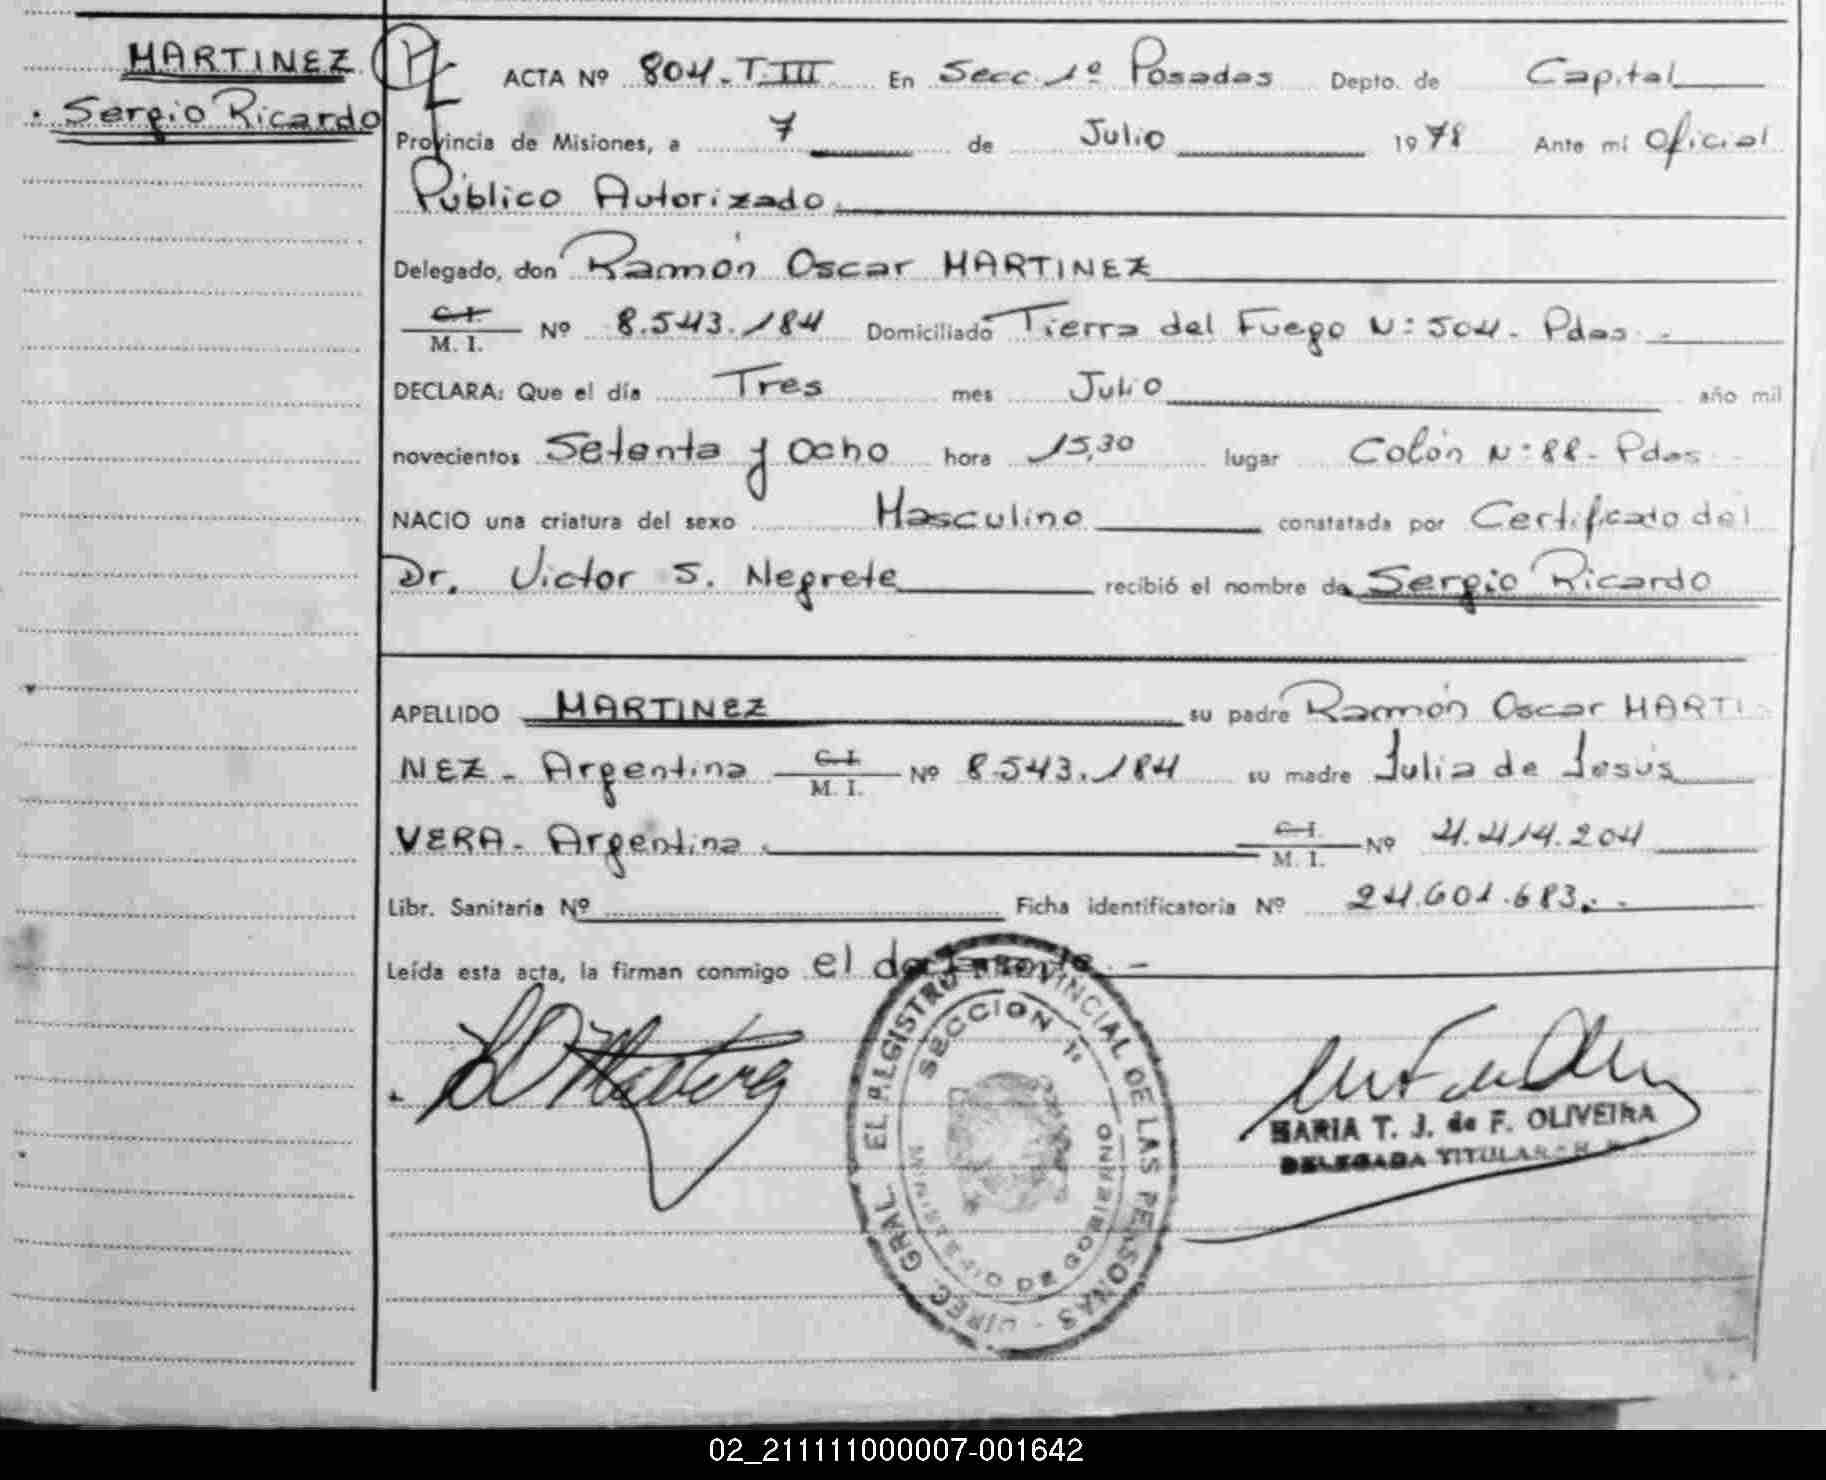 MARTINEZ
Sergio Ricardo
ACTA Nº 804-T.III En Secc. 1º Posadas Depto. de Capital
Provincia de Misiones, a 7 de Julio 1978 Ante mí Oficial
Público Autorizado.
Delegado, don Ramón Oscar MARTINEZ
C. I.
M. I. Nº 8.543.184 Domiciliado Tierra del Fuego N: 504- Pdas.-
DECLARA: Que el día Tres mes Julio año mil
novecientos Setenta y Ocho hora 15,30 lugar Colón N: 88- Pdas.-
NACIO una criatura del sexo Masculino constatada por Certificado del
Dr. Victor S. Negrete recibió el nombre de Sergio Ricardo
APELLIDO MARTINEZ su padre Ramón Oscar MARTI
NEZ - Argentina C. I. M. I. Nº 8.543.184 su madre Julia de Jesús
VERA- Argentina. C. I. M. I. Nº 4.414.204
Libr. Sanitaria Nº Ficha identificatoria Nº 24.601.683.-
Leída esta acta, la firman conmigo el declarante.-
DIREC. GRAL. EL REGISTRO PROVINCIAL DE LAS PERSONAS -
SECCION 1º
MINISTERIO DE GOBIERNO
MARIA T. J. de F. OLIVEIRA
DELEGADA TITULAR
02_211111000007-001642